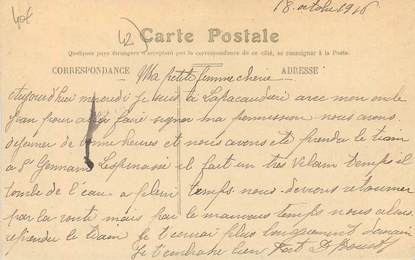 18 octobre 1916
406
42)
Carte Postale
Quelques pays étrangers n'acceptant pas la correspondance de ce côté, se renseigner à la Poste.
CORRESPONDANCE
ADRESSE
Ma petite femme cherie
Aujourd'hui mercredi je suis a Lapacaudière avec mon oncle
Jean pour faire signer ma permission nous avons
dejeuner de bonne heures et nous avons ete prendre le train
a St Germain Lespinasse il fait un tres velain temps il
tombe de l'eau a plein temps nous devions retourner
par la route mais par le mauvais temps nous allons
reprendre le train je t'ecrirai plus longuement demain
Je t'embrasse bien fort